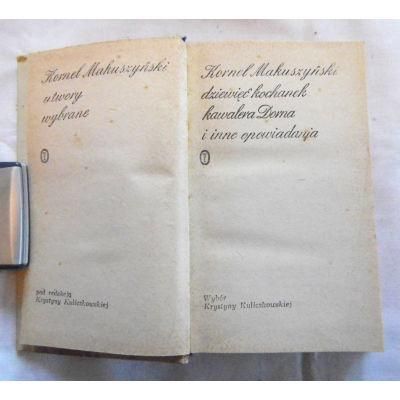 Kornel Makuszyński
utwory
wybrane
pod redakcją
Krystyny Kuliczkowskiej
Kornel Makuszyński
dziewięć kochanek
kawalera Dorna
i inne opowiadania
Wybór
Krystyny Kuliczkowskiej